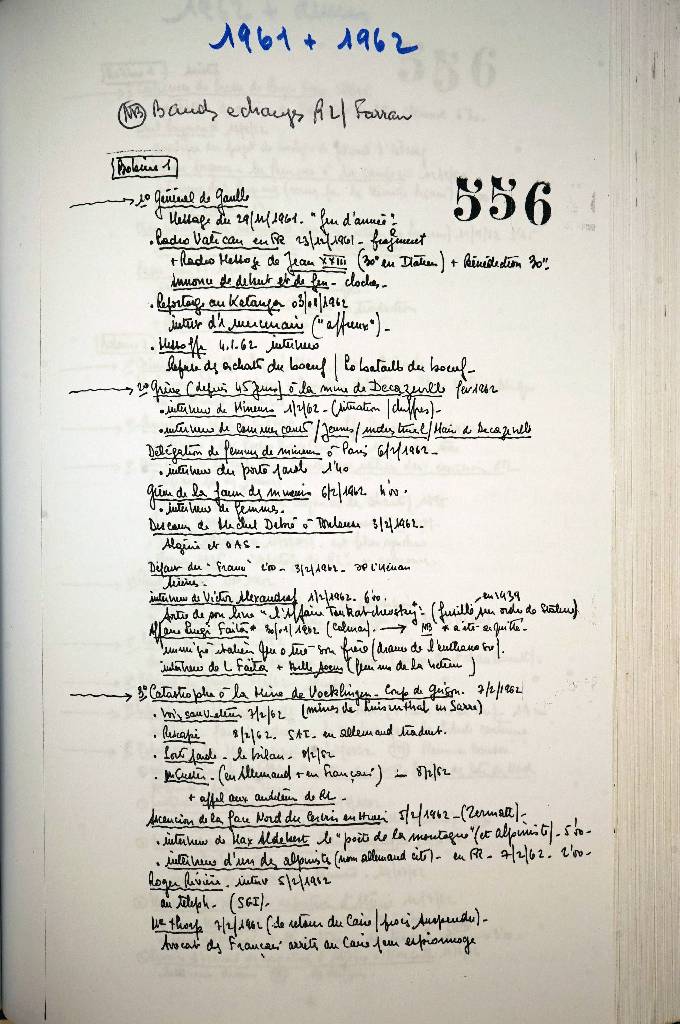 1961 + 1962
NB Bandes echanges R2/ Farran
Bobine 1
556
1° Général de Gaulle
Message du 29/12/1961. "fin d'année".
. Radio Vatican en FR 23/12/1961 - fragment
+ Radio Message de Jean XXIII (30" en Italien) + Bénédiction 30".
Annonce de debut et de fin - cloches -
. Reportage au Katanga 03/01/1962
interv d'1 mercenaire ("affreux") -
. 4.1.62 interview
Refus des achats du boeuf / la bataille du boeuf -
2° Grève (depuis 45 jours) à la mine de Decazeville fev 1962
. interview de Mineurs 1/2/62 - (situation / chiffres) -
. interview de commercants / Jeunes / industriel / Maire de Decazeville
Délégation de femmes de mineurs à Paris 6/2/1962 -
. interview du porte parole 1'40
Grève de la faim des mineurs 6/2/1962
. interview de femmes.
Discours de Michel Debré à Toulouse 3/2/1962.
Algérie et OAS -
Départ du "France" 2'00 - 3/2/1962 -
Sirènes.
interview de Victor Alexandrov 1/2/1962. 6'00.
Sortie de son livre "l'Affaire Toukatchevsky" (fusillé sur ordre de Staline)
Affaire Luigi Faita * 30/01/1962 (Colmar). → NB * a été acquitté.
immigré italien qui a tué son frère (drame de l'euthanasie).
interview de L Faita + Belle soeur (femme de la victime)
3° Catastrophe à la Mine de Voelklingen - Coup de grisou. 7/2/1962
. Voix sauveteur 7/2/62 (mines de Luisenthal en Sarre)
. Rescapé 8/2/62. SAI. en allemand traduit.
. le bilan - 8/2/62
. (en Allemand + en Français) - 8/2/62
+ appel aux auditeurs de RL -
Ascencion de la face Nord du Cervin en Hiver 5/2/1962 - (Zermatt) -
. interview de Max Aldebert le "poète de la montagne" (et alpiniste) - 5'00 -
. interview d'un des alpinistes (nom allemand cité) - en FR - 7/2/62 - 2'00 -
Roger Rivière - interv 5/2/1962
au téleph. (SGI).
7/2/1962 (le retour du Caire / procès suspendu) -
Avocat des Français arrêtés au Caire pour espionnage